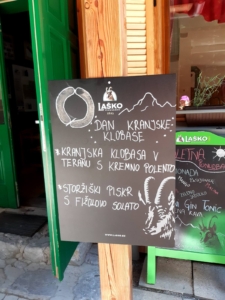 LAŠKO
DAN KRANJSKE
KLOBASE
*KRANJSKA KLOBASA V
TERANU S KREMNO POLENTO
*STORŽIŠKI PISKR
S FIŽOLOVO SOLATO
LAŠKO
LETNA
Gin Tonic